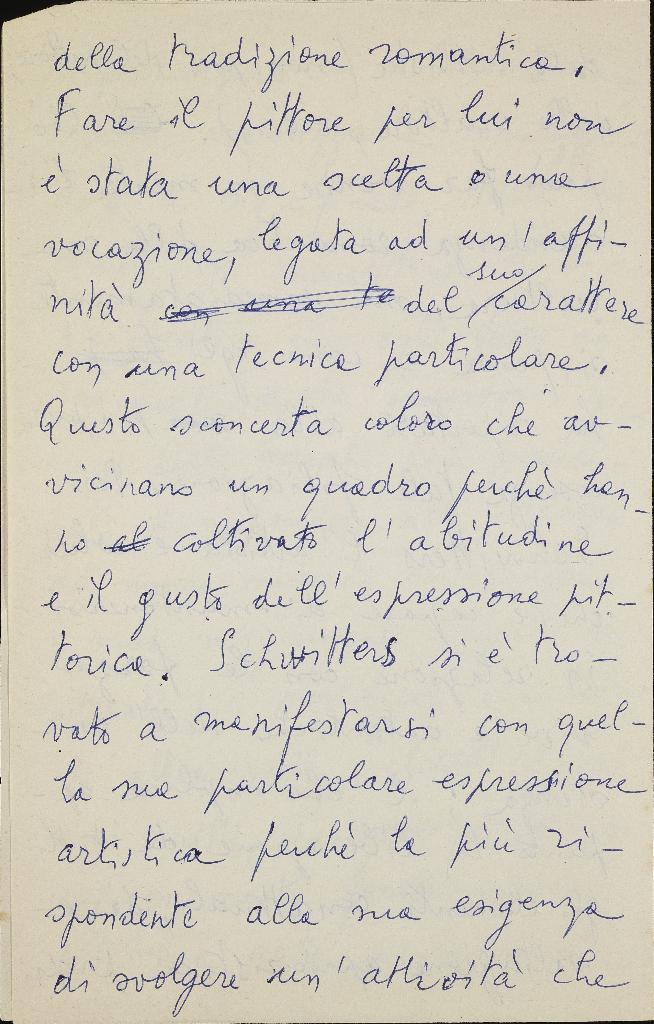 della tradizione romantica.
Fare il pittore per lui non
è stata una scelta o una
vocazione, legata ad un'affi-
nità con una te del suo carattere
con una tecnica particolare.
Questo sconcerta coloro che av-
vicinano un quadro perchè han-
no al coltivato l'abitudine
e il gusto dell'espressione pit-
torica. Schwitters si è tro-
vato a manifestarsi con quel-
la sua particolare espressione
artistica perchè la più ri-
spondente alla sua esigenza
di svolgere un'attività che